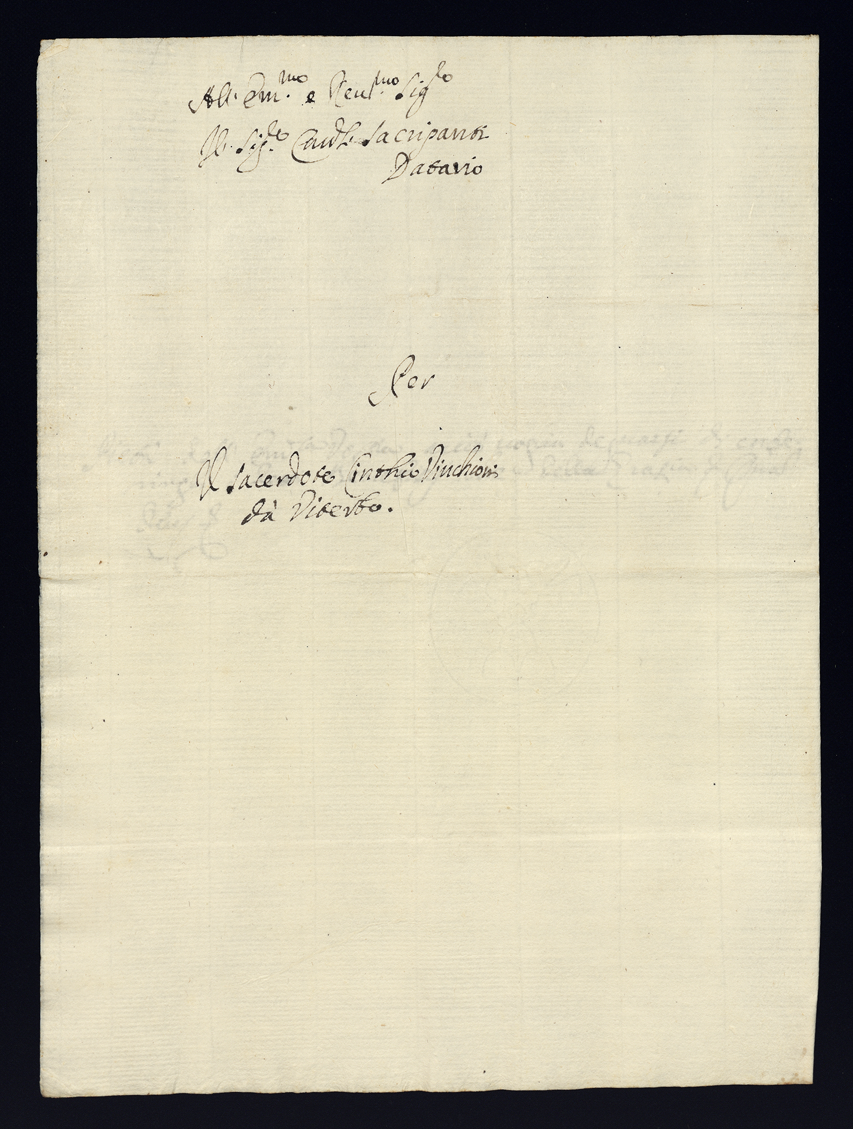 All' Em.mo e Reu.mo Sig.re
Il Sig.re Card.le Sacripanti
Datario
Per
Il Sacerdote Cinthio Vinchioni
da Viterbo.